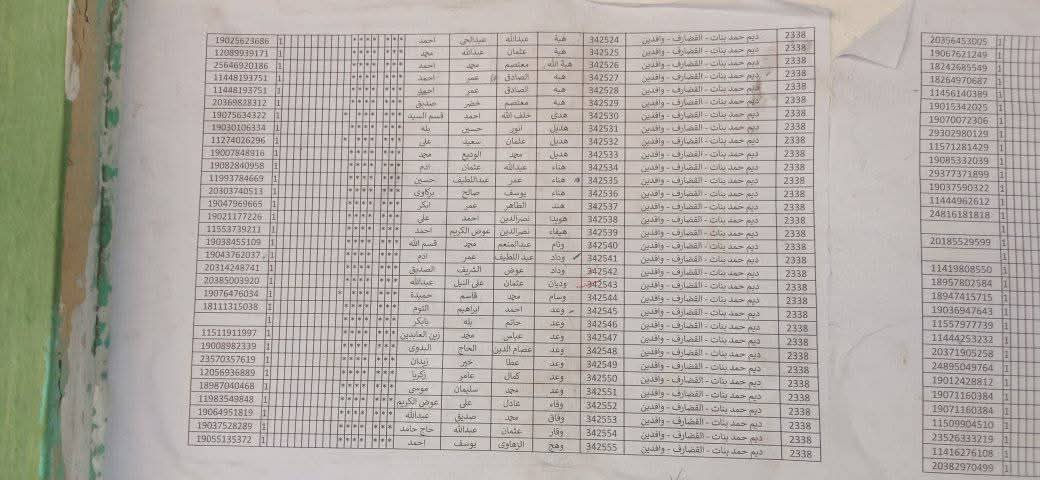 2338 ديم حمد بنات - القضارف - وافدين 342524 هبة عبدالله عبدالحي احمد *** **** 1 19025623686
2338 ديم حمد بنات - القضارف - وافدين 342525 هبة عثمان عبدالله محمد *** **** 1 12089939171
2338 ديم حمد بنات - القضارف - وافدين 342526 هبة الله معتصم محمد احمد *** **** 1 25646920186
2338 ديم حمد بنات - القضارف - وافدين 342527 هبه الصادق عمر احمد *** **** 1 11448193751
2338 ديم حمد بنات - القضارف - وافدين 342528 هبه الصادق عمر احمد *** **** 1 11448193751
2338 ديم حمد بنات - القضارف - وافدين 342529 هبه معتصم خضر صديق *** **** 1 20369828312
2338 ديم حمد بنات - القضارف - وافدين 342530 هدى خلف الله احمد قسم السيد *** **** * 1 19075634322
2338 ديم حمد بنات - القضارف - وافدين 342531 هديل انور حسين بله *** **** 1 19030106334
2338 ديم حمد بنات - القضارف - وافدين 342532 هديل عثمان سعيد على *** **** 1 11274026296
2338 ديم حمد بنات - القضارف - وافدين 342533 هديل محمد الوديع محمد *** **** 1 19007848916
2338 ديم حمد بنات - القضارف - وافدين 342534 هناء عبدالله عثمان ادم *** **** 1 19082840958
2338 ديم حمد بنات - القضارف - وافدين 342535 هناء عمر عبداللطيف حسين *** **** 1 11993784669
2338 ديم حمد بنات - القضارف - وافدين 342536 هناء يوسف صالح بركاوى *** **** 1 20303740513
2338 ديم حمد بنات - القضارف - وافدين 342537 هند الطاهر عمر ابكر *** **** 1 19047969665
2338 ديم حمد بنات - القضارف - وافدين 342538 هويدا نصرالدين احمد علي *** **** 1 19021177226
2338 ديم حمد بنات - القضارف - وافدين 342539 هيفاء نصرالدين عوض الكريم احمد *** **** 1 11553739211
2338 ديم حمد بنات - القضارف - وافدين 342540 وئام عبدالمنعم محمد قسم الله *** **** 1 19038455109
2338 ديم حمد بنات - القضارف - وافدين 342541 وداد عبد اللطيف عمر ادم *** **** 1 19043762037
2338 ديم حمد بنات - القضارف - وافدين 342542 وداد عوض الشريف الصديق *** **** 1 20314248741
2338 ديم حمد بنات - القضارف - وافدين 342543 وديان عثمان على النيل عبدالله *** **** 1 20385003920
2338 ديم حمد بنات - القضارف - وافدين 342544 وسام محمد قاسم حميدة *** **** * 1 19076476034
2338 ديم حمد بنات - القضارف - وافدين 342545 وعد احمد ابراهيم التوم *** **** 1 18111315038
2338 ديم حمد بنات - القضارف - وافدين 342546 وعد حاتم بله بابكر *** **** 1
2338 ديم حمد بنات - القضارف - وافدين 342547 وعد عباس محمد زين العابدين *** **** 1 11511911997
2338 ديم حمد بنات - القضارف - وافدين 342548 وعد عصام الدين الحاج البدوى *** **** 1 19008982339
2338 ديم حمد بنات - القضارف - وافدين 342549 وعد عطا خير زيدان *** **** 1 23570357619
2338 ديم حمد بنات - القضارف - وافدين 342550 وعد كمال عامر زكريا *** **** 1 12056936889
2338 ديم حمد بنات - القضارف - وافدين 342551 وعد محمد سليمان موسى *** **** 1 18987040468
2338 ديم حمد بنات - القضارف - وافدين 342552 وفاء عادل علي عوض الكريم *** **** 1 11983549848
2338 ديم حمد بنات - القضارف - وافدين 342553 وفاق محمد صديق عبدالله *** **** 1 19064951819
2338 ديم حمد بنات - القضارف - وافدين 342554 وقار عثمان عبدالله حاج حامد *** **** 1 19037528289
2338 ديم حمد بنات - القضارف - وافدين 342555 وهج الزهاوى يوسف احمد *** **** 1 19055135372
1 20356453005
1 19067621249
1 18242685549
1 18264970687
1 11456140389
1 19015342025
1 19070072306
1 29302980129
1 11571281429
1 19085332039
1 29377371899
1 19037590322
1 11444962612
1 24816181818
1
1 20185529599
1
1 11419808550
1 18957802584
1 18947415715
1 19036947643
1 11557977739
1 11444253232
1 20371905258
1 24895049764
1 19012428812
1 19071160384
1 19071160384
1 11509904510
1 23526333219
1 11416276108
1 20382970499